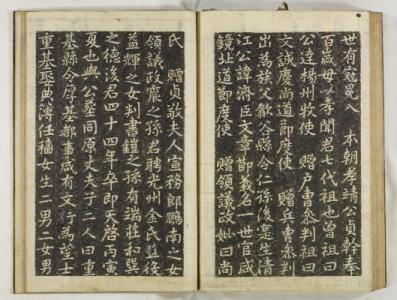 世有冠冕入 本朝孝靖公貞幹奉
百歲母以孝聞君七代祖也曾祖曰
公達楊州牧使 贈戶曹參判祖曰
文誠慶尚道節度使 贈兵曹參判
出爲族父歙谷縣令仁孫後寔生淸
江公諱濟臣文章節義名一世官咸
鏡北道節度使 贈領議政妣曰尚
氏 贈貞敬夫人宣務郎鵬南之女
領議政震之孫君聘光州金氏監役
益輝之女判書鎧之孫有端莊和巽
之德後君四十四年卒即天啓丙寅
夏也與公墓同原丈夫子二人曰重
基縣令厚基都事咸有文行爲望士
重基娶典簿任穡女生二男二女男